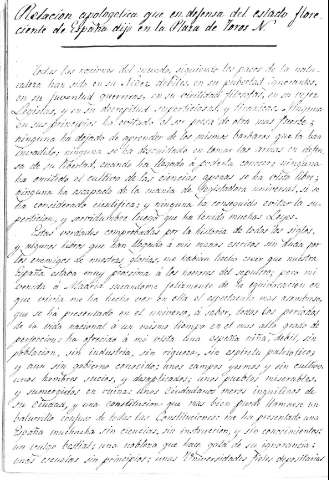 Relacion apologetica que en defensa del estado flore
ciente de España dijo en la Plaza de Toros N.
Todas las naciones del mundo, siguiendo los pasos de la natu
raleza han sido en su niñez debiles, en su pubertad ignorantes,
en su juventud guerreras, en su virilidad filosofas, en su vejez
Legistas, y en su decrepitud supersticiosas, y tiranicas. Ninguna
en sus principios ha evitado el ser presa de otra mas fuerte;
ninguna ha dejado de aprender de los mismos barbaros que la han
invadido; ninguna se ha descuidado en tomar las armas en defen
sa de su libertad, cuando ha llegado á poderla conocer; ninguna
ha omitido el cultivo de las ciencias apenas se ha visto libre;
ninguna ha escapado de la mania de Legisladora universal, si se
ha considerado cientifica; y ninguna ha conseguido evitar la su
persticion, y servidumbre luego que ha tenido muchas Leyes.
Estas verdades comprobadas por la historia de todos los siglos,
y algunos libros que han llegado á mis manos escritos sin duda por
los enemigos de nuestras glorias, me habian hecho creer que nuestra
España estaba muy proxima á los horrores del sepulcro; pero mi
venida á Madrid sacandome felizmente de la equibocacion en
que vivia me ha hecho ver en ella el espectaculo mas asombroso,
que se há presentado en el universo, á saber, todos los periodos
de la vida nacional á un mismo tiempo en el mas alto grado de
perfeccion: há ofrecido á mi vista una España niña, debil, sin
poblacion, sin industria, sin riqueza, sin espiritu patriotico
y aun sin gobierno conocido; unos campos yermos y sin cultivo,
unos hombres sucios, y desaplicados; unos pueblos miserables,
y sumergidos en ruinas; unos Ciudadanos meros inquilinos de
su Ciudad, y una constitucion que mas bien puede llamarse un
batiburrillo confuso de todas las Constituciones: me ha presentado una
España muchacha sin ciencias, sin instruccion, y sin conocimientos:
un vulgo bestial; una nobleza que hace gala de su ignorancia;
unas escuelas sin principios; unas Universidades fieles depositarias